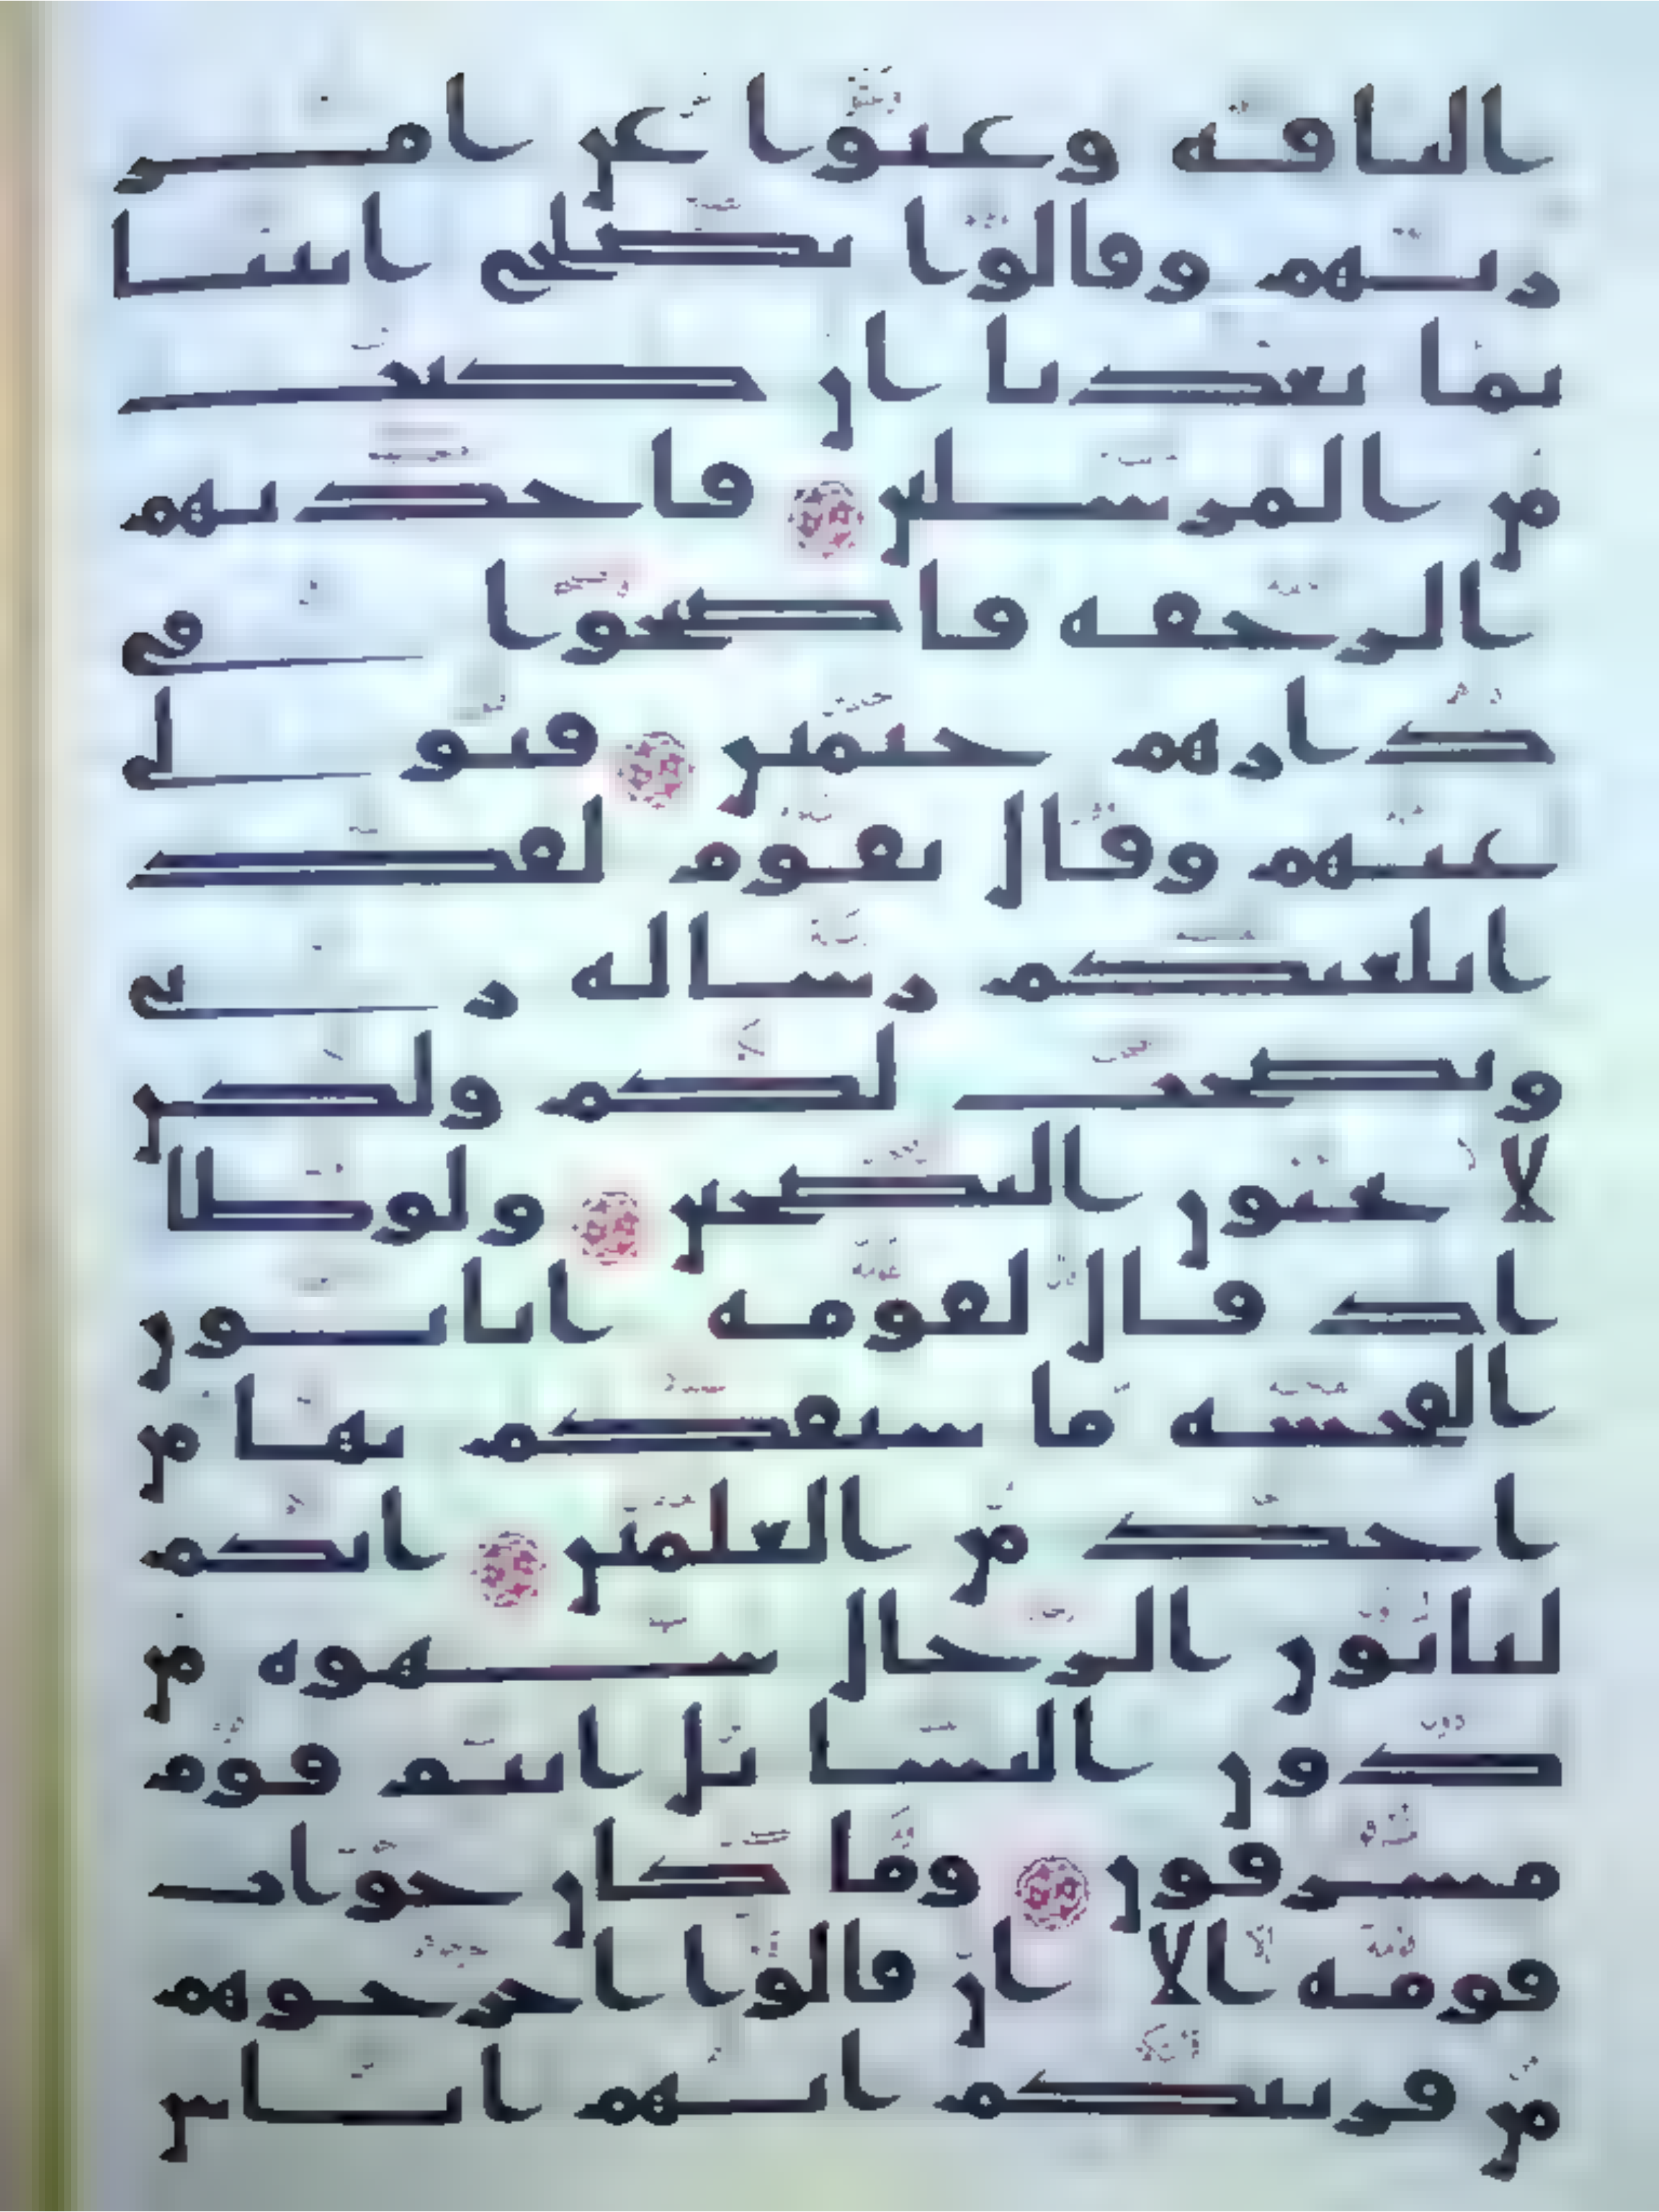 الناقة وعتوا عن امر
ربهم وقالوا يصلح ائتنا
بما تعدنا ان كنت
من المرسلين فاخذتهم
الرجفة فاصبحوا في
دارهم جثمين فتو لى
عنهم وقال يقوم لقد
ابلغتكم رسالة ر بي
ونصحت لكم ولكن
لا تحبون النصحين ولوطا
اذ قال لقومه اتاتون
الفحشة ما سبقكم بها من
احد من العلمين انكم
لتاتون الرجال شهوة من
دون النسا بل انتم قوم
مسرفون وما كان جواب
قومه الا ان قالوا اخرجوهم
من قريتكم انهم اناس